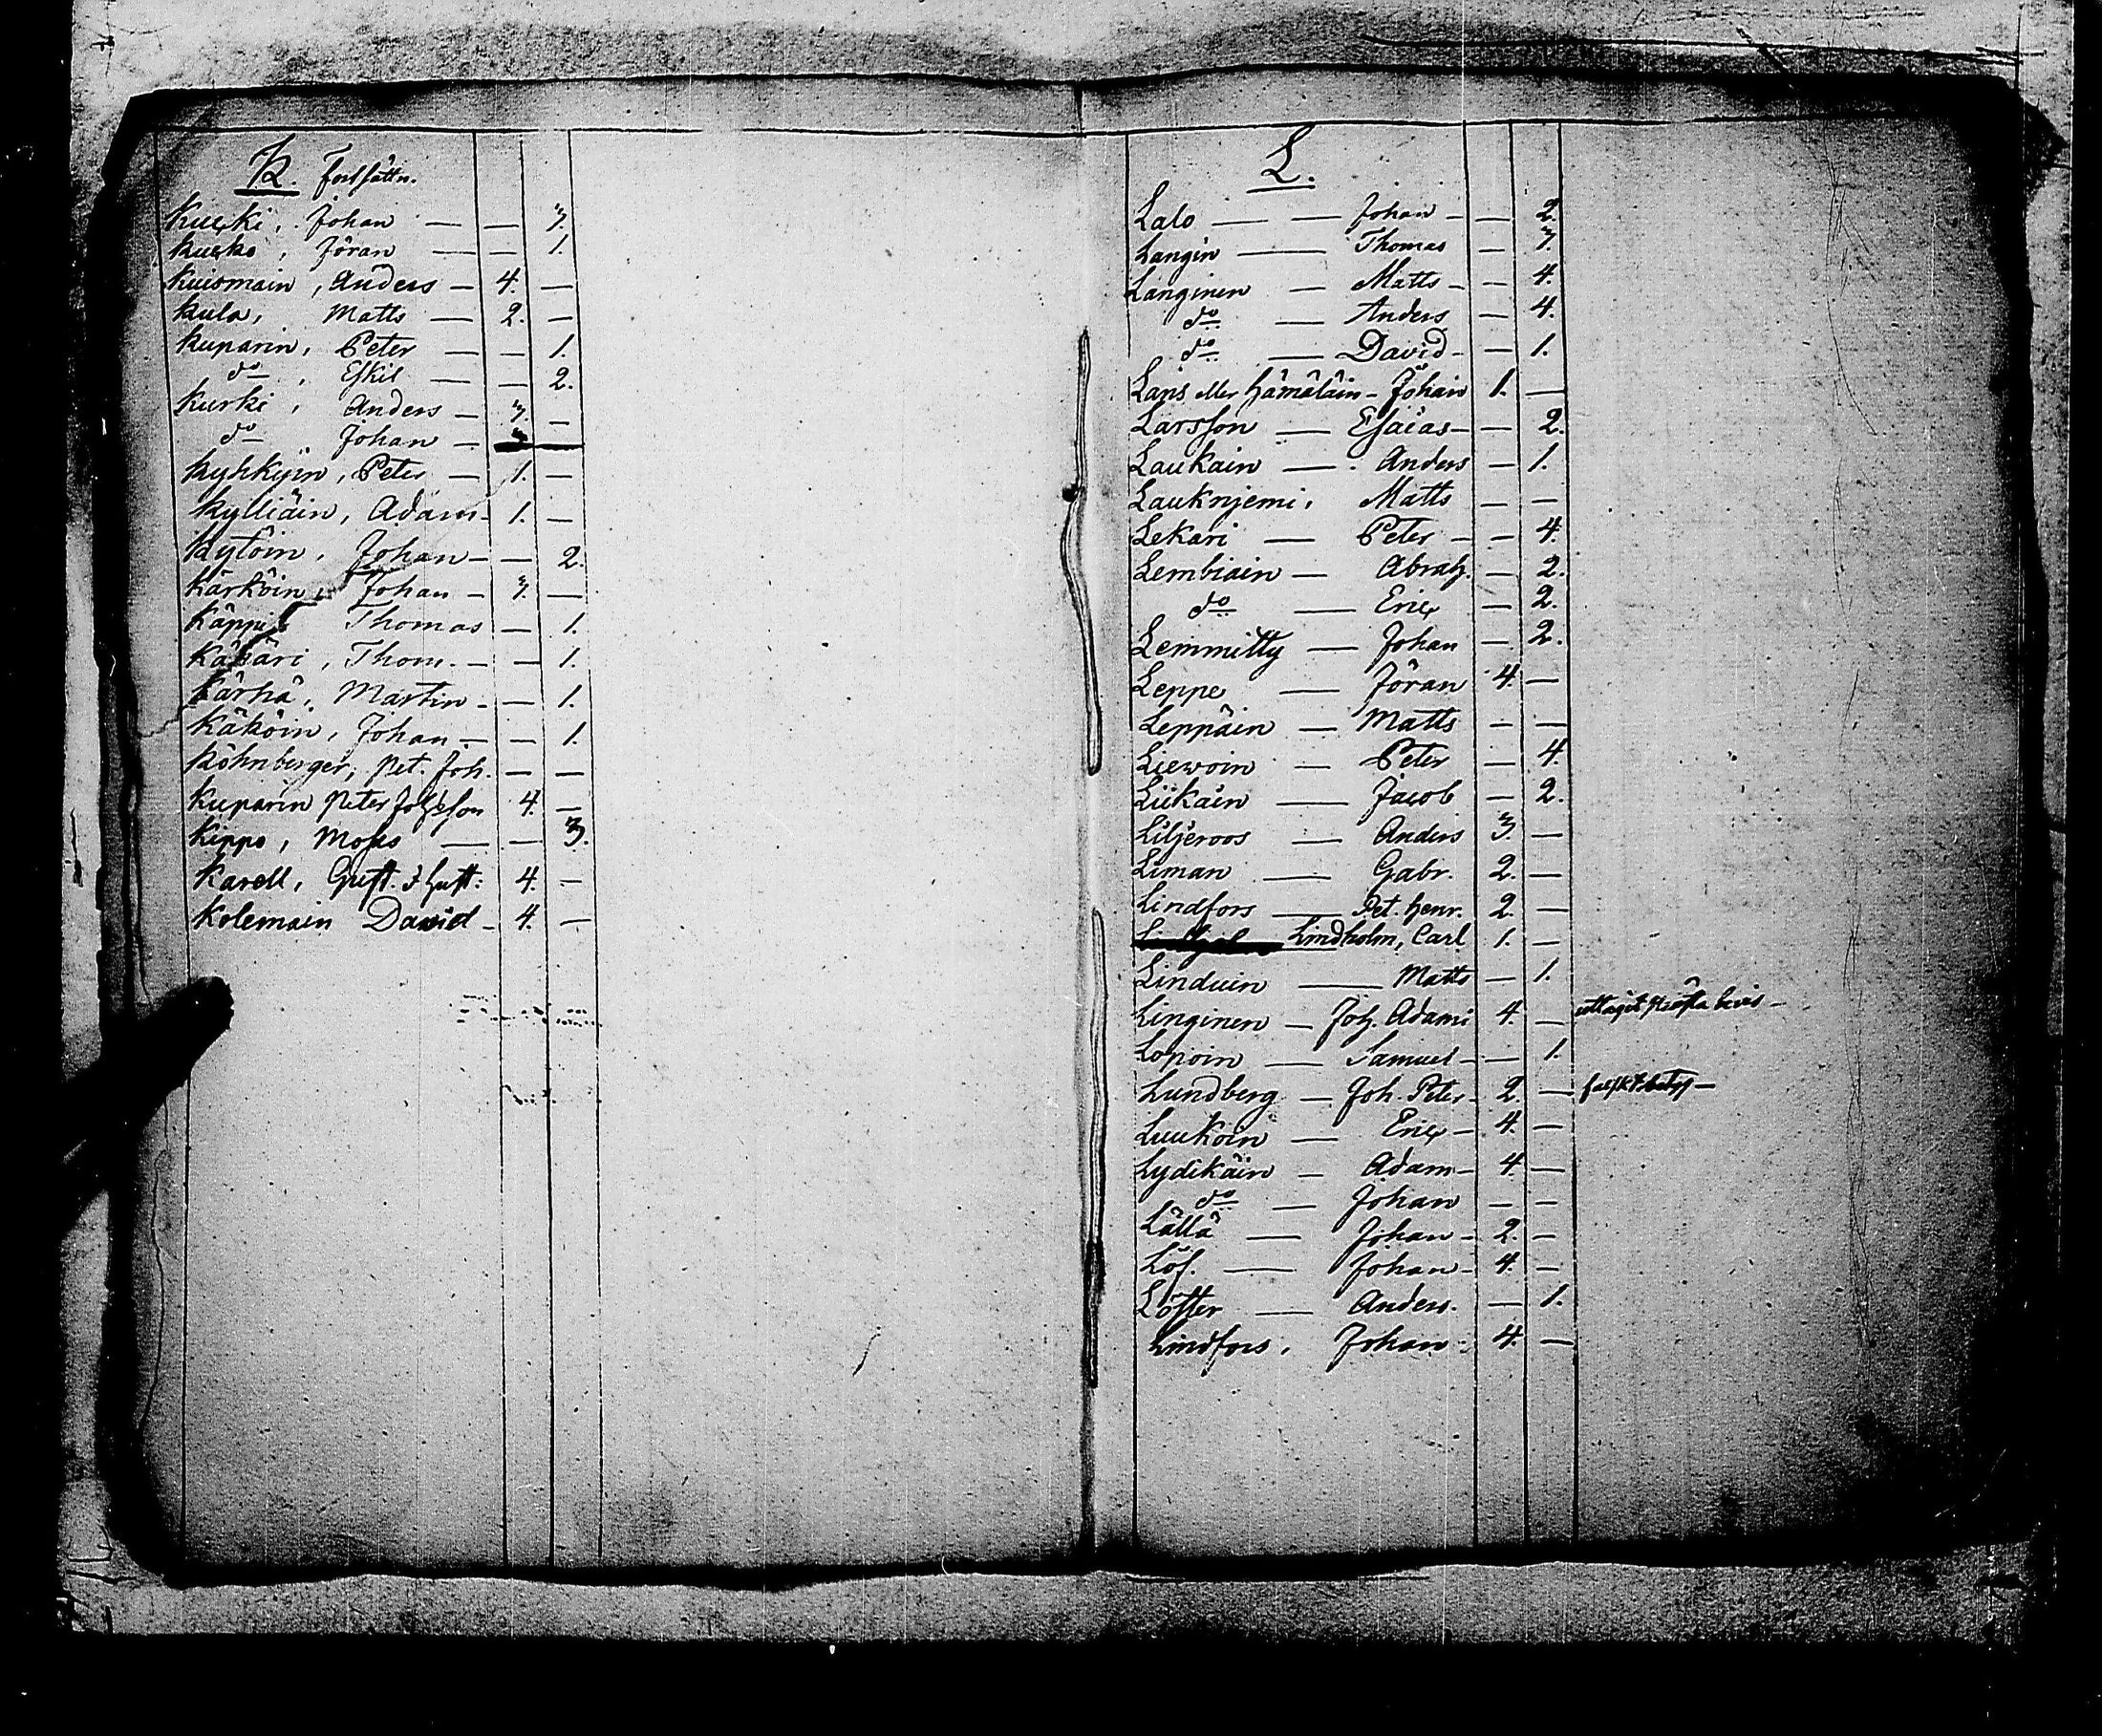 K. Fortsättn.
Kucki, Johan — — 3.
Kucko, Jöran — — 1.
Kuismain, Anders — 4. —
Kula, Matts — 2. —
Kuparin, Peter — — 1.
do, Eskil — — 2.
Kurki, Anders — 3. —
do, Johan —
Kyhkyin, Peter — 1. —
Kylliäin, Adam — 1. —
Kytöin, Johan — — 2.
Kärköin, Johan — 3. —
Käppi, Thomas — 1.
Käkäri, Thom. — — 1.
Kärhä, Martin — — 1.
Käköin, Johan — — 1.
Köhnberger, Pet. Joh. — —
Kuparin Peter Johsson 4. —
Kippo, Moses — — 3.
Karell, Gust. 4. —
Kolemain David — 4. —
L.
Lalo — — Johan — — 2.
Langin — Thomas — 3.
Langinen — Matts — — 4.
do — Anders — 4.
do — David — — 1.
Lans eller Hämäläin — Johan 1. —
Larsson — Esaias — — 2.
Laukain — Anders — 1.
Lauknjemi, Matts — —
Lekari — Peter — — 4.
Lembiain — Abrah. — 2.
do — Eric — 2.
Lemmitty — Johan — 2.
Leppe — Jöran 4. —
Leppäin — Matts — —
Liewoin — Peter — 4.
Liikain — Jacob — 2.
Liljeroos — Anders 3. —
Liman — Gabr. 2. —
Lindfors — Pet. Henr. 2. —
Lindholm, Carl 1. —
Linduin — Matts — 1.
Linginen — Joh. Adami 4. — uttagit bevis —
Lopoin — Samuel — — 1.
Lundberg — Joh. Peter — 2. —
Luukoin — Eric — 4. —
Lydikäin — Adam — 4. —
do — Johan — —
Lällä — Johan — 2. —
Löf. — Johan — 4. —
Lötter — Anders. — 1.
Lindfors, Johan — 4. —